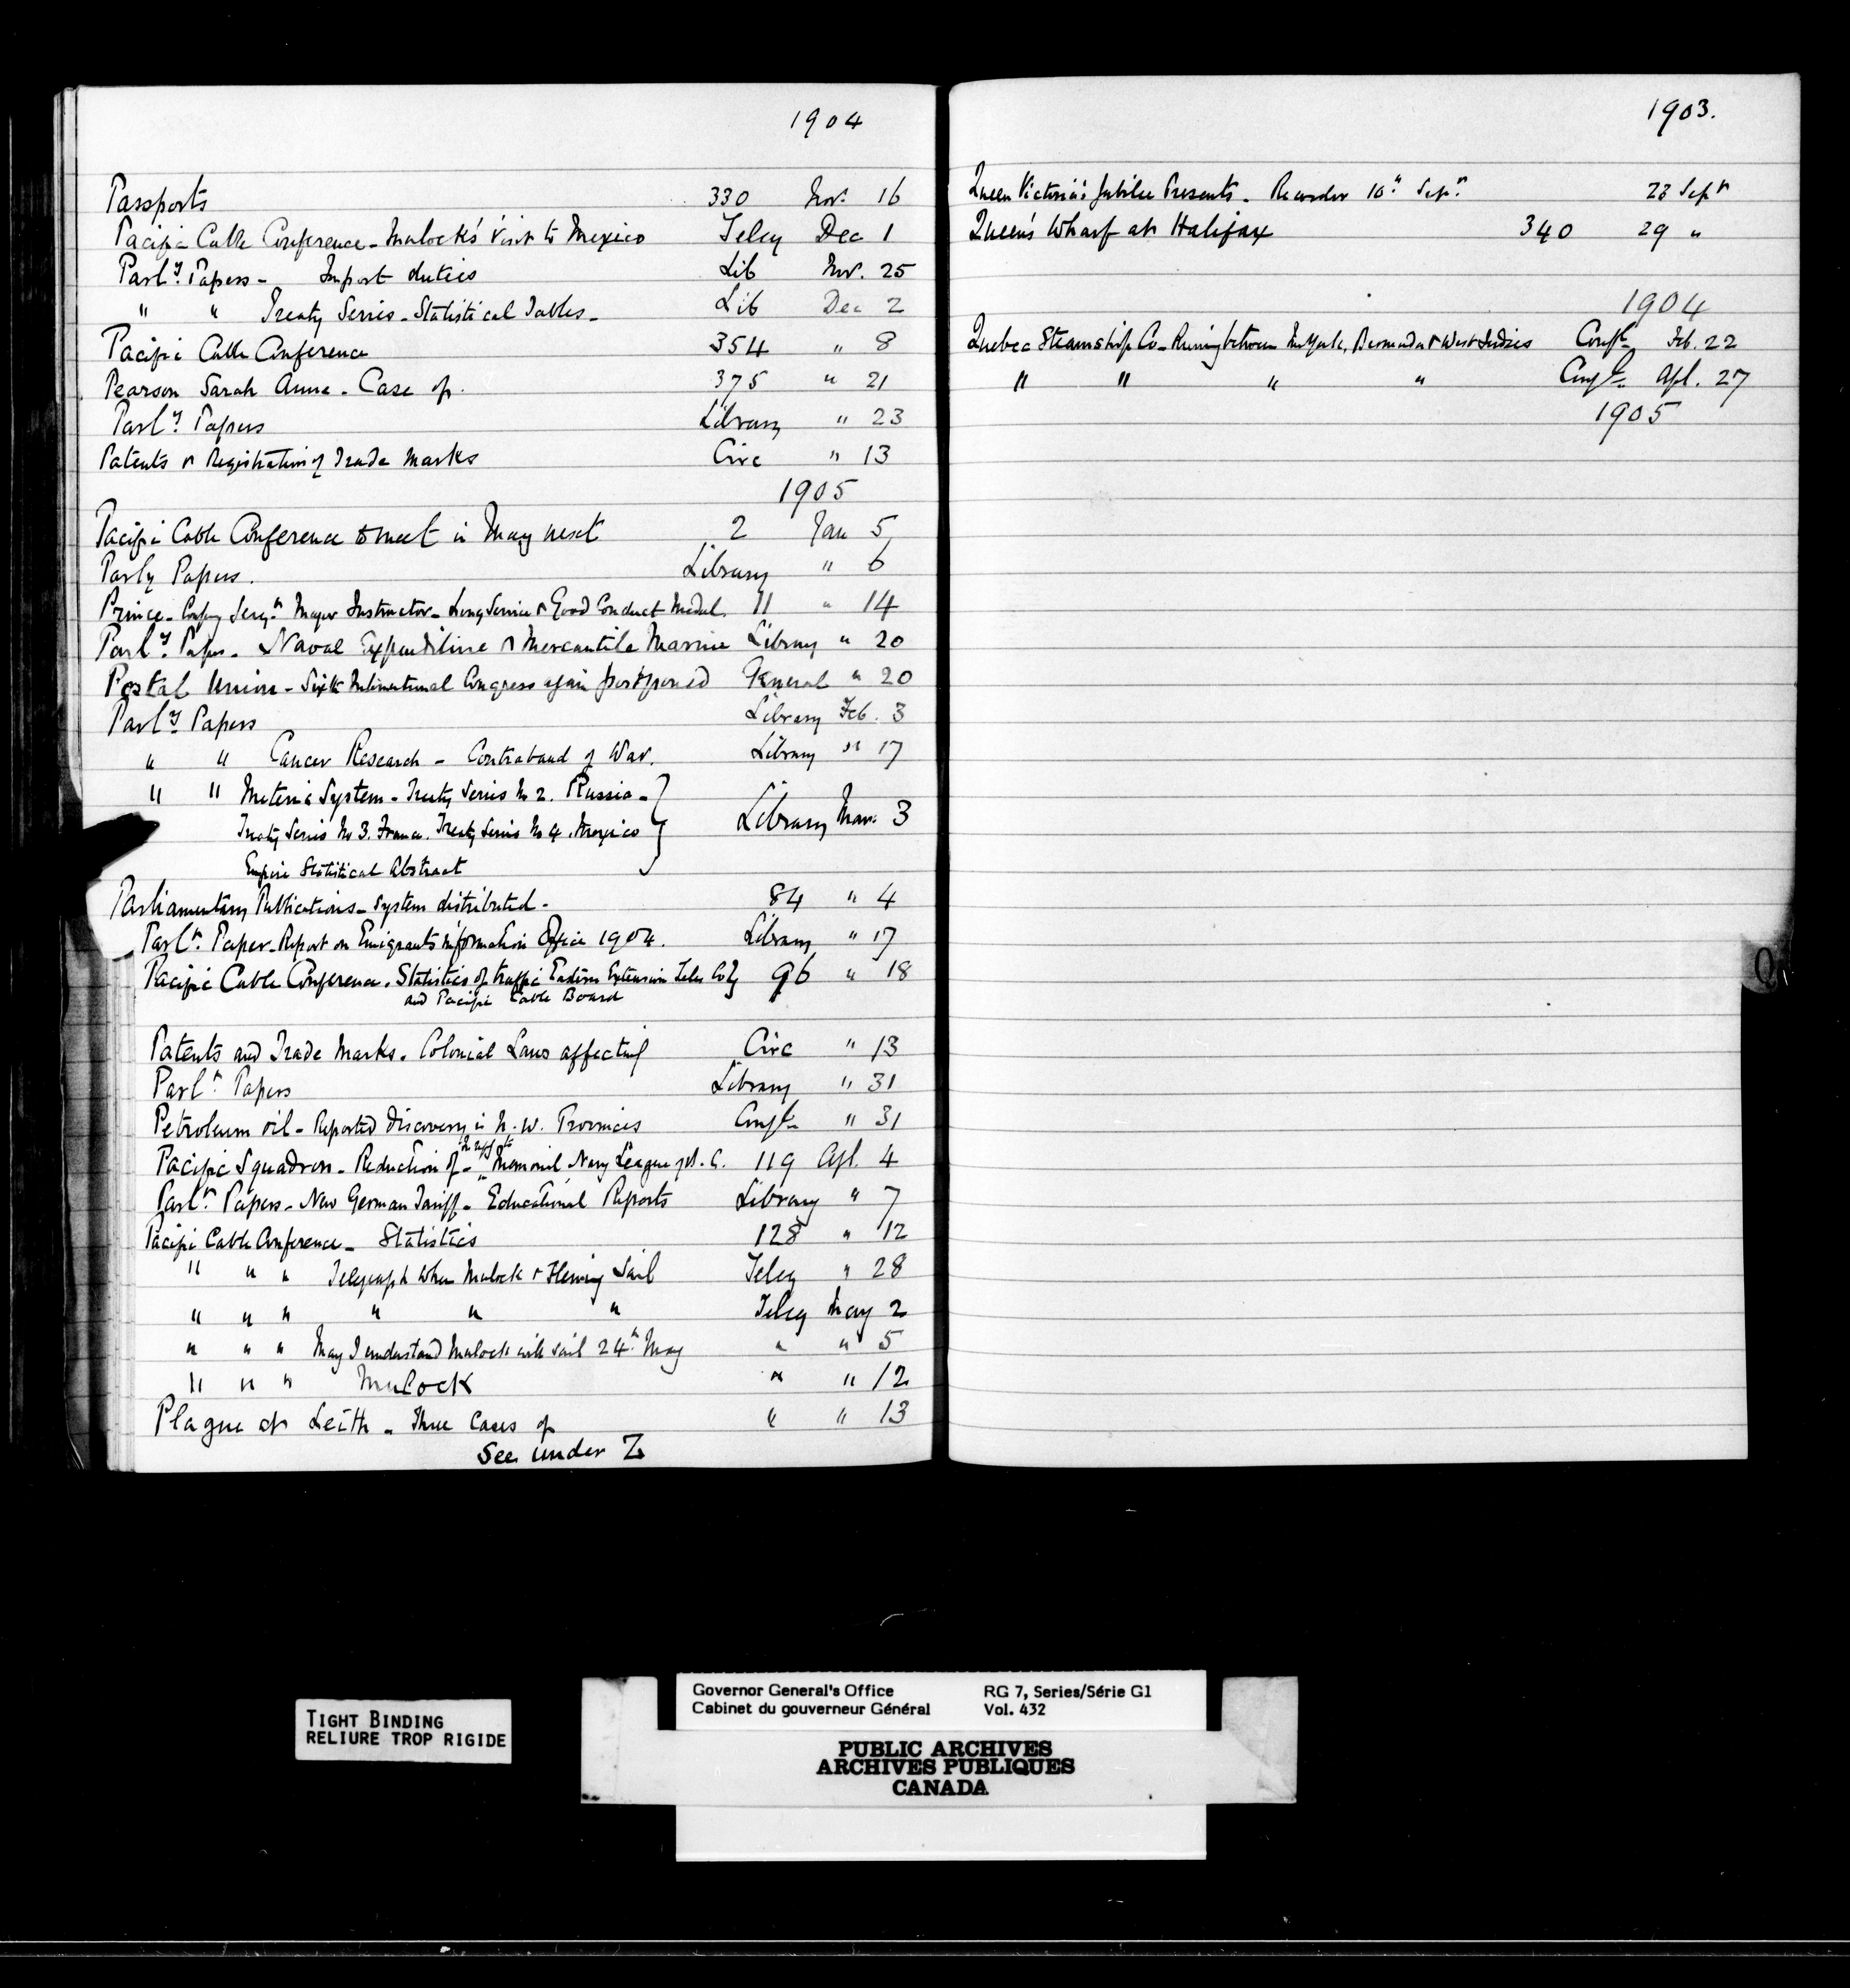 1904
Passports 330 Nov. 16
Pacific Cable Conference - Mulock's visit to Mexico Teleg Dec 1
Parly. Papers - Import duties Lib Nov. 25
" " Treaty Series - Statistical Tables - Lib Dec 2
Pacific Cable Conference 354 " 8
Pearson Sarah Anne - Case of. 375 " 21
Parly. Papers Library " 23
Patents & Registration of Trade Marks Circ " 13
1905
Pacific Cable Conference to meet in May next 2 Jan 5
Parly Papers. Library " 6
Prince - Sergt. Major Instructor - Long Service & Good Conduct Medal. 11 " 14
Parly. Papers - Naval Expenditure & Mercantile Marine Library " 20
Postal Union - Sixth International Congress again postponed General " 20
Parly Papers Library Feb. 3
" " Cancer Research - Contraband of War. Library " 17
" " Metric System - Treaty Series No 2. Russia -
Treaty Series No 3. France. Treaty Series No 4. Mexico Library Mar. 3
Empire Statistical Abstract
Parliamentary Publications - System distributed - 84 " 4
Parlt. Paper - Report on Emigrants Information Office 1904. Library " 17
Pacific Cable Conference. Statistics of traffic Eastern Extension Teleg Coy 96 " 18
and Pacific Cable Board
Patents and Trade Marks. Colonial Laws affecting Circ " 13
Parlt. Papers Library " 31
Petroleum oil - Reported discovery in N.W. Provinces Confl " 31
Pacific Squadron - Reduction of - Memorial Navy League of B.C. 119 Apl. 4
Parlt. Papers - New German Tariff - Educational Reports Library " 7
Pacific Cable Conference - Statistics 128 " 12
" " " Telegraph when Mulock & Fleming sail Teleg " 28
" " " " " " Teleg May 2
" " " May I understand Mulock will sail 24th. May " " 5
" " " Mulock " " 12
Plague at Leith - Three Cases of " " 13
See under Z
1903.
Queen Victoria's Jubilee Presents - Recorder 10th Sept. 23 Sept
Queen's Wharf at Halifax 340 29 "
1904
Quebec Steamship Co - Running between New York, Bermuda & West Indies Confl Feb. 22
" " " " Confl Apl. 27
1905
Q
TIGHT BINDING
RELIURE TROP RIGIDE
Governor General's Office RG 7, Series/Série G1
Cabinet du gouverneur Général Vol. 432
PUBLIC ARCHIVES
ARCHIVES PUBLIQUES
CANADA